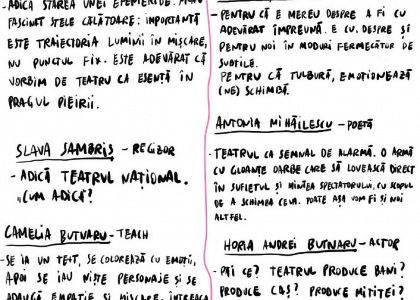 -ADICĂ STAREA UNEI EFEMERIDE. M-AU
FASCINAT STELE CĂLĂTOARE: IMPORTANTĂ
ESTE TRAIECTORIA LUMINII ÎN MIȘCARE,
NU PUNCTUL FIX. ESTE ADEVĂRAT CĂ
VORBIM DE TEATRU CA ESENȚĂ ÎN
PRAGUL PIEIRII.
SLAVA SAMBRIȘ - REGIZOR
- ADICĂ TEATRUL NAȚIONAL.
"CUM ADICĂ?
CAMELIA BUTNARU - TEACH
-SE IA UN TEXT, SE COLOREAZĂ CU EMOȚII,
APOI SE IAU NIȘTE PERSONAJE ȘI SE
ADAUGĂ EMPATIE ȘI MIȘCARE. ÎNTREAGA
- PENTRU CĂ E MEREU DESPRE A FI CU
ADEVĂRAT ÎMPREUNĂ. E CU, DESPRE ȘI
PENTRU NOI ÎN MODURI FERMECĂTOR DE
SUBTILE.
PENTRU CĂ TULBURĂ, EMOȚIONEAZĂ
(NE) SCHIMBĂ.
ANTONIA MIHĂILESCU - POETĂ
- TEATRUL CA SEMNAL DE ALARMĂ. O ARMĂ
CU GLOANȚE OARBE CARE SĂ LOVEASCĂ DIRECT
ÎN SUFLETUL ȘI MINTEA SPECTATORULUI, CU SCOPUL
DE A SCHIMBA CEVA. POATE AȘA VOM FI ȘI NOI
ALTFEL.
HORIA ANDREI BUTNARU - ACTOR
- PĂI CE? TEATRUL PRODUCE BANI?
PRODUCE CAȘ? PRODUCE MITITEI?